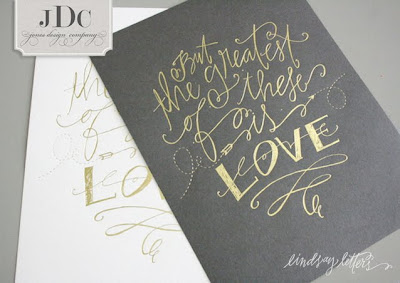 JDC
jones design company
But
the greatest
of these
is
LOVE
the
of
LO
lindsay letters